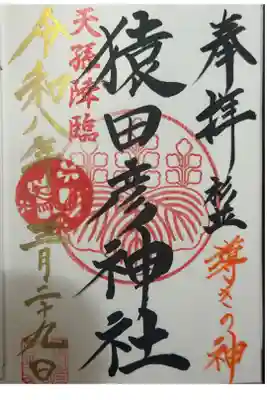 奉拝
導きの神
猿田彦神社
天孫降臨
令和八年
月二十九日